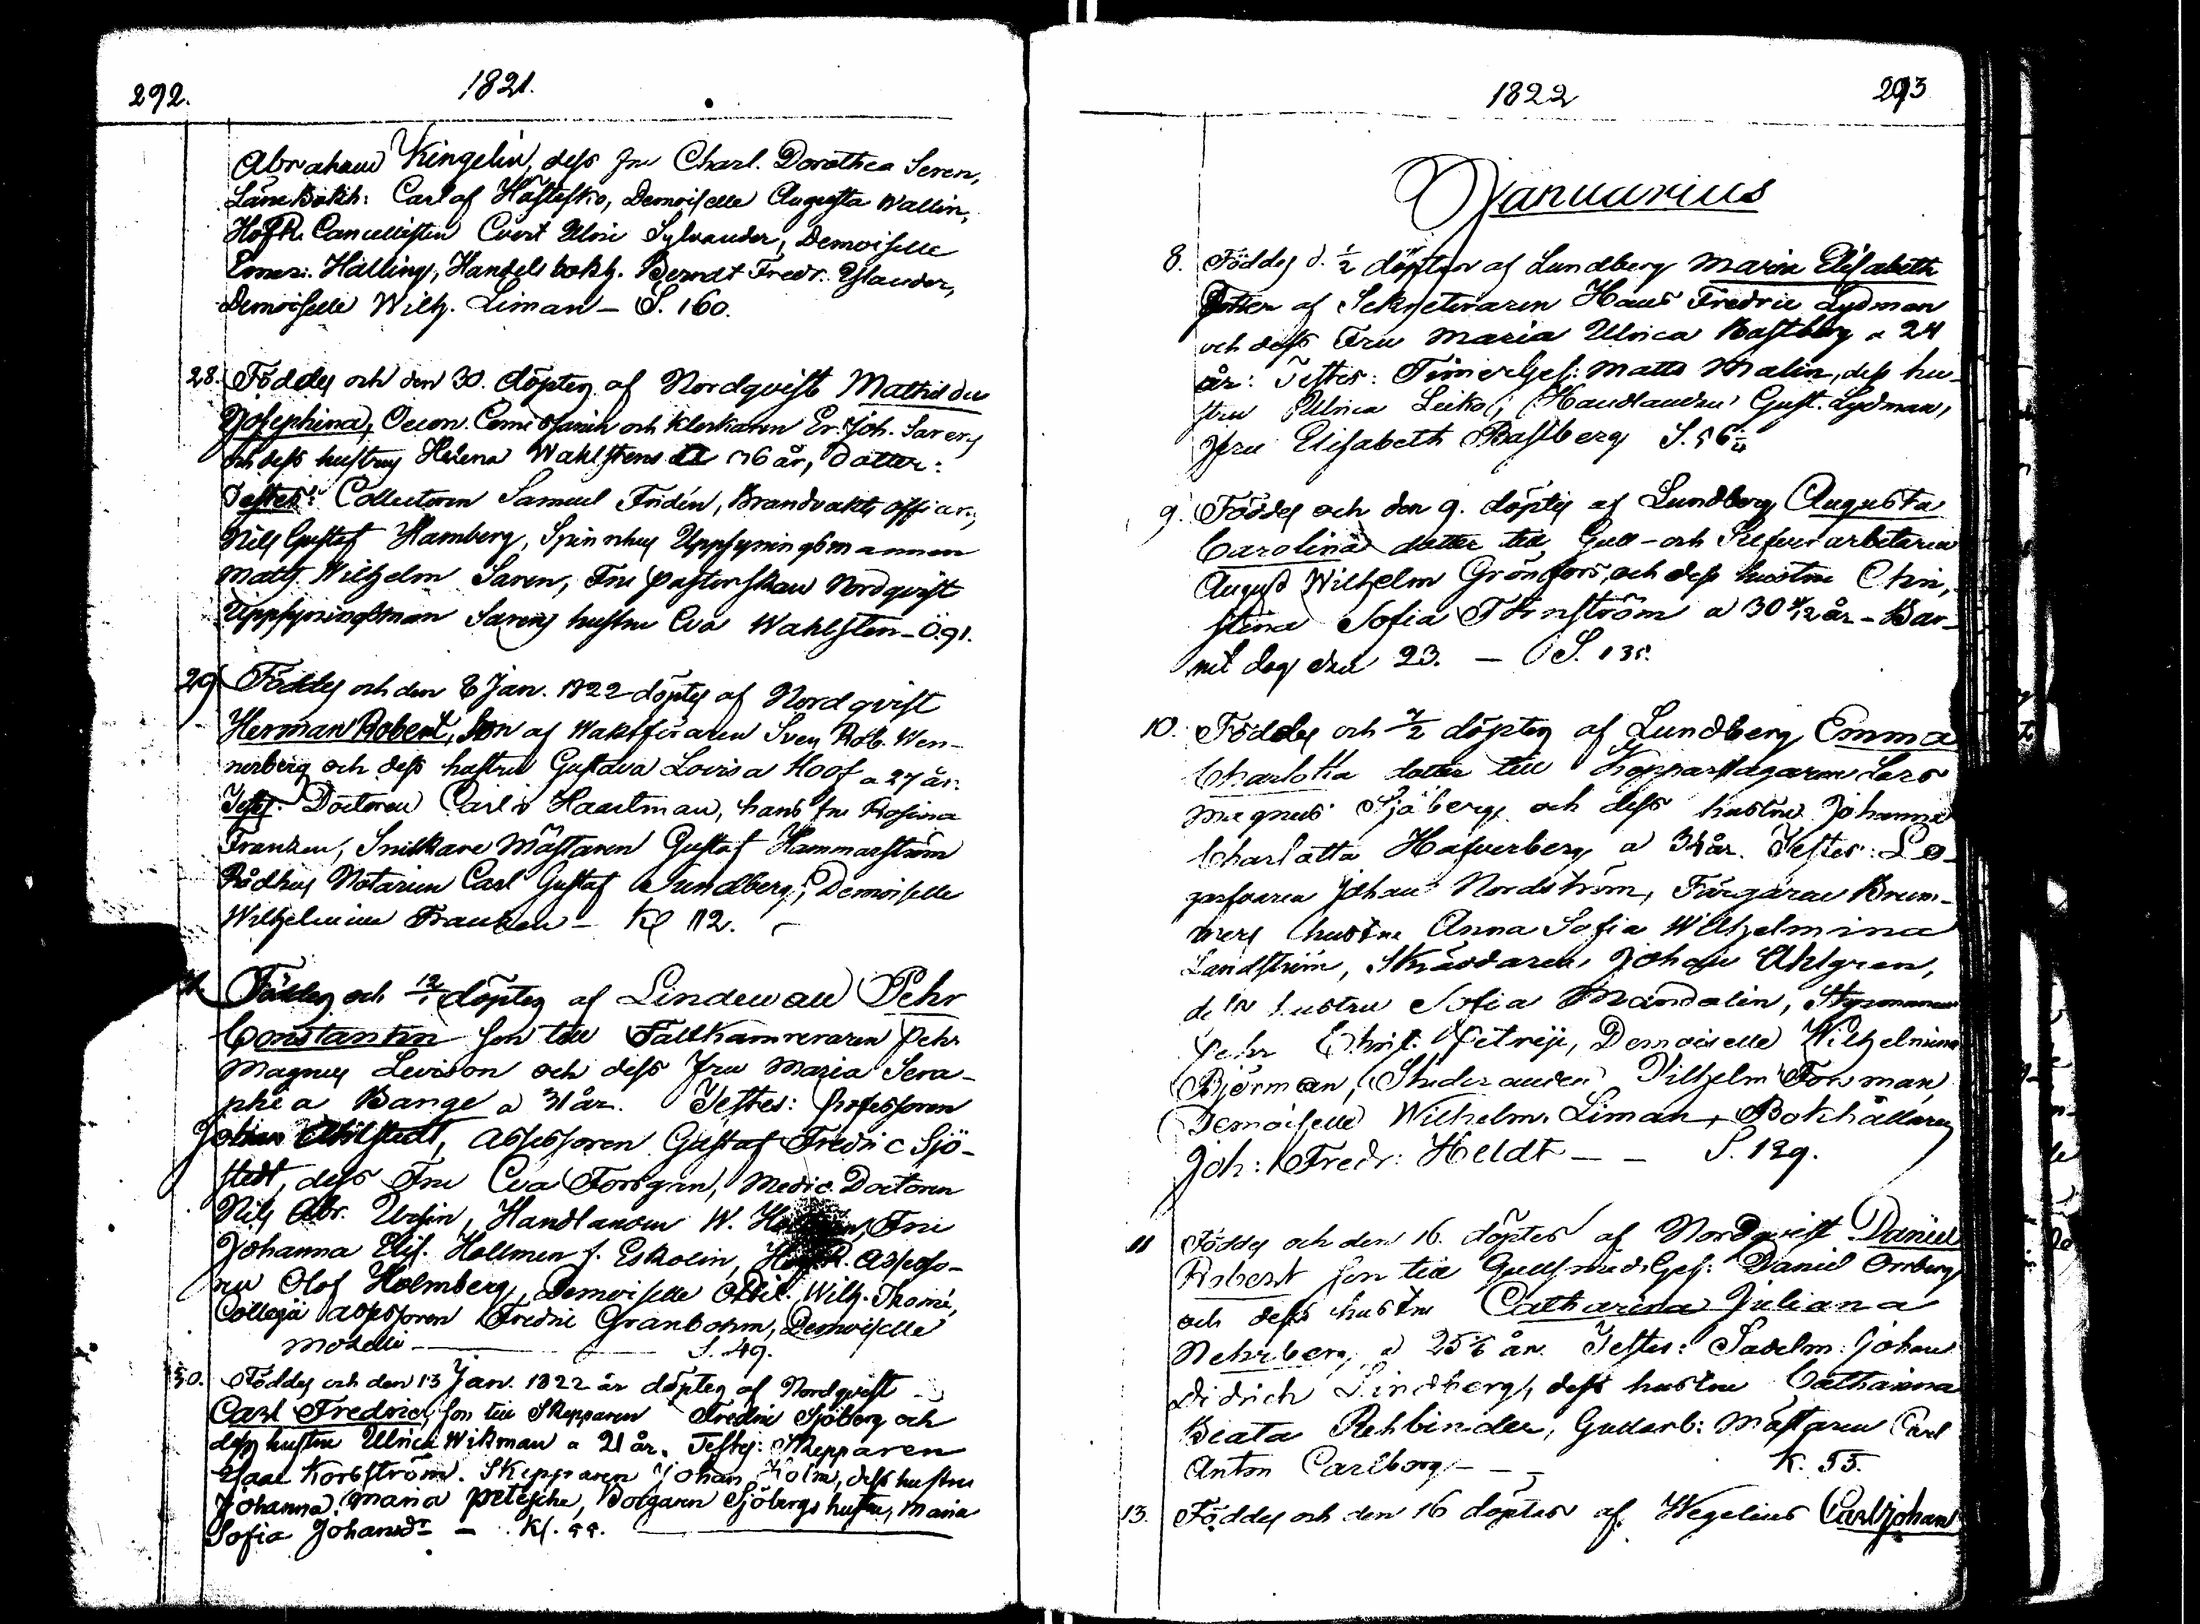 292.
1821.
Abraham Kingelin, dess fru Charl. Dorothea Seren,
Läne Bokh: Carl af Hästesko, Demoiselle Augusta Wallin,
HofR. Cancellisten Evert Ulric Sylvander, Demoiselle
Halling, Handels bokh. Berndt Fredr. Ylander,
Demoiselle Wilh. Liman – S. 160.
28. Föddes och den 30. döptes af Nordqvist Mathilda
Josephina, Oecon. och Klockaren Er. Joh. Sarens
och dess hustrus Helena Wahlstens 36 år, Dotter:
Testes: Collectoren Samuel Fridén, Brandvakts officern,
Nils Gustaf Hamberg, Spinnhus Uppsyningsmannen
Math. Wilhelm Saren, Fru Pastorskan Nordqvist
Uppsyningsman Sarens hustru Eva Wahlsten – Ö. 91.
29 Föddes och den 8 Jan. 1822 döptes af Nordqvist
Herman Robert, Son af Vaktföraren Sven Rob. Wen-
nerberg och dess hustru Gustava Lovisa Hoof a 27 år.
Testes: Doctoren Carl v Haartman, hans fru Rosina
Franzen, Snickare Mästaren Gustaf Hammarström
Rådhus Notarien Carl Gustaf Sundberg, Demoiselle
Wilhelmina Franzen – Kl 112.
Föddes och 12/1 döptes af Lindewall Pehr
Constantin son till Fältkamreraren Pehr
Magnus Levison och dess Fru Maria Sera-
phia Bange a 31 år. Testes: Professoren
Johan Ahlstedt, Assessoren Gustaf Fredric Sjö-
stedt, dess Fru Eva Forsgren, Medic. Doctoren
Nils Abr. Ursin, Handlanden W. Fru
Johanna Elis. Hollmen f. Eskolin, HofR. Assesso-
ren Olof Holmberg, Demoiselle Wilh. Thomé,
Collegii Assessoren Fredric Granbohm, Demoiselle
Moselli – S. 49.
30. Föddes och den 13 Jan. 1822 år döptes af Nordqvist
Carl Fredric, son till Skepparen Fredric Sjöberg och
dess hustru Ulrica Wikman a 21 år. Testes: Skepparen
Isac Korsström. Skepparen Johan Holm, dess hustru
Johanna Maria Petesche, Borgaren Sjöbergs hustru, Maria
Sofia Johansdr – Kl. 55.
1822
293
Januarius
8. Föddes d. 1/2 döptes af Lundberg Maria Elisabeth
Dotter af Sekreteraren Hans Fredric Lydman
och dess Fru Maria Ulrica Bastberg a 24
år: Testes: Timerges: Matts Malin, dess hu-
stru Ulrica Leiko, Handlanden Gust. Lydman,
Fru Elisabeth Bastberg S. 56
9. Föddes och den 9. döptes af Lundberg Augusta
Carolina dotter till Gull- och Silfver arbetaren
August Wilhelm Grönfors, och dess hustru Chri-
stina Sofia Törnström a 30 år – Bar-
net dog den 23. – S. 135.
10. Föddes och 7/2 döptes af Lundberg Emma
Charlotta dotter till Kopparslagaren Lars
Magnus Sjöberg och dess hustru Johanna
Charlotta Hafverberg a 34 år. Testes: La-
garfvaren Johan Nordström, Färgaren Brum-
mers hustru Anna Sofia Wilhelmina
Landström, Skräddaren Johan Ahlgren,
dess hustru Sofia Mandalin, Styrmannen
Pehr Christ. Petreji, Demoiselle Wilhelmina
Björman, Studeranden Vilhelm Forsman,
Demoiselle Wilhelm. Liman, Bokhållaren
Joh: Fredr: Heldt – – S. 129.
11 Föddes och den 16. döptes af Nordqvist Daniel
Robert son till Gullsmedsges: Daniel Orrberg
och dess hustru Catharina Juliana
Nehrberg a 25 år. Testes: Sadelm: Johan
Didrich Lindberg, dess hustru Catharina
Beata Rehbinder, Gullarb: Mästaren Carl
Anton Carlborg – – K. 55.
13. Föddes och den 16 döptes af Wegelius Carl Johan